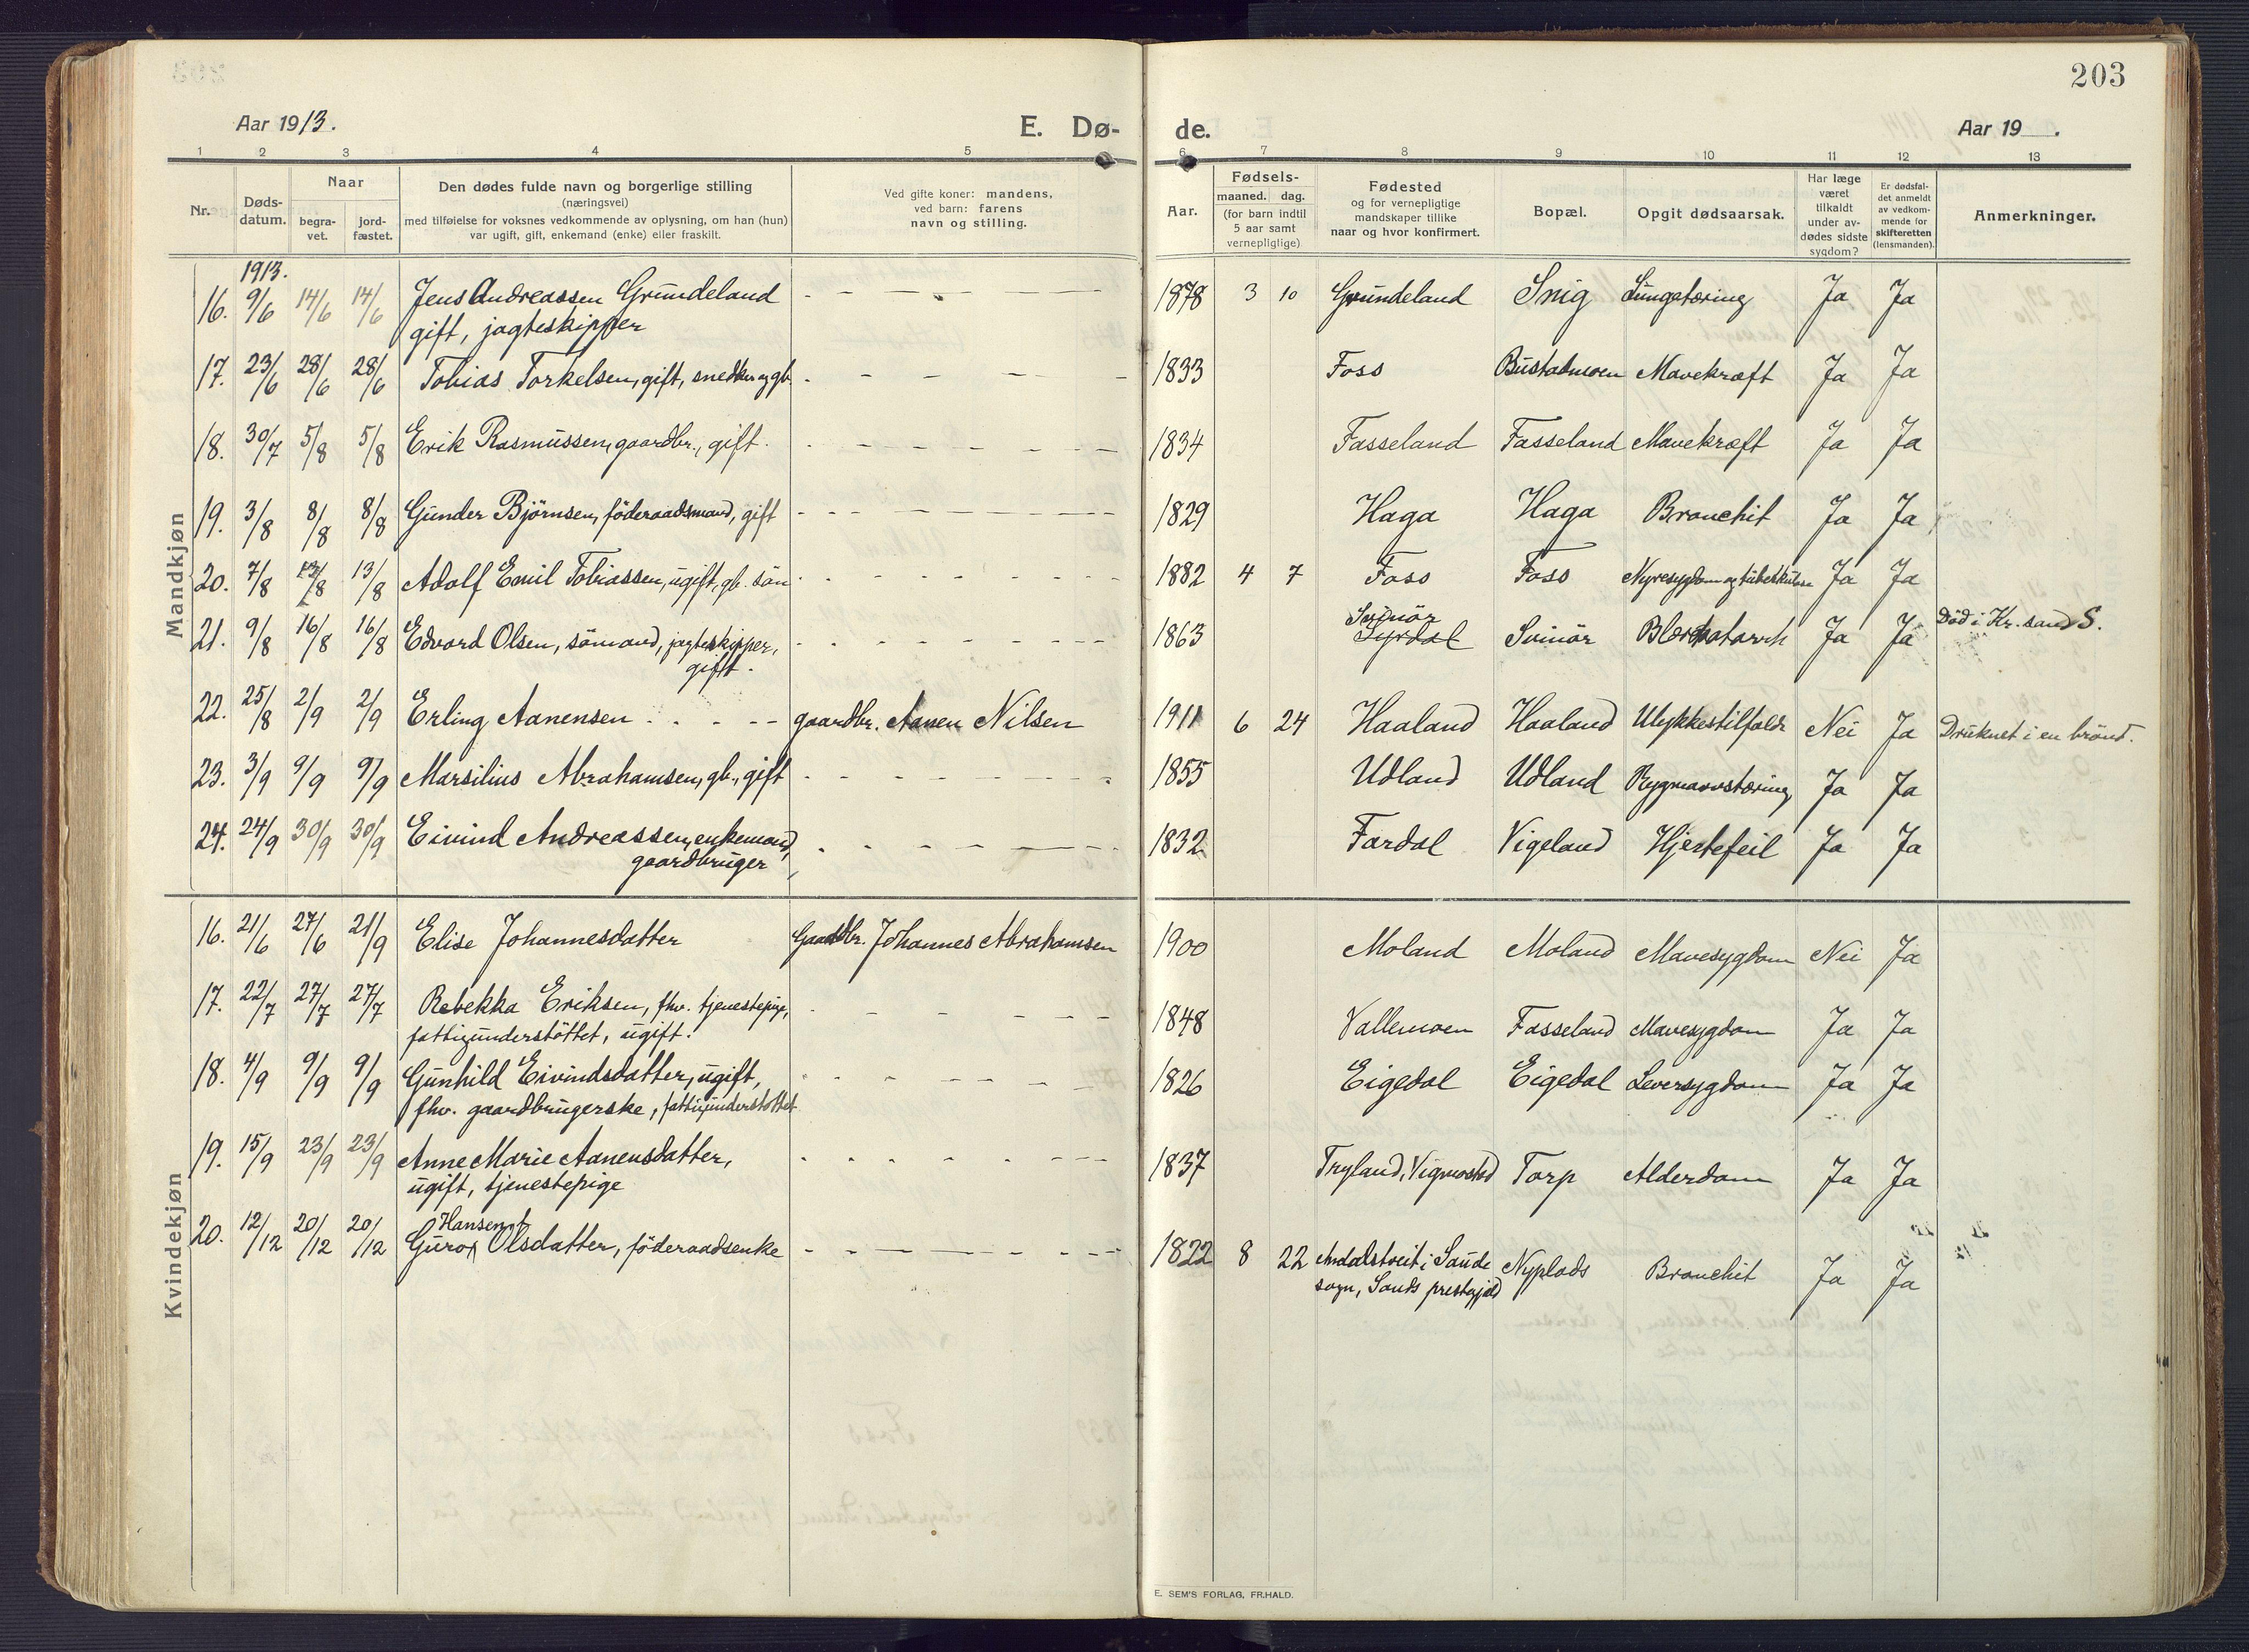 203
Aar 1913.
E. Dø-
de.
Aar 19 .
1 2 3 4 5 6 7 8 9 10 11 12 13
Nr.
Døds-
datum.
Naar
begra-
vet.
jord-
fæstet.
Den dødes fulde navn og borgerlige stilling
(næringsvei)
med tilføielse for voksnes vedkommende av oplysning, om han (hun)
var ugift, gift, enkemand (enke) eller fraskilt.
Ved gifte koner: mandens,
ved barn: farens
navn og stilling.
Aar.
Fødsels-
maaned. dag.
(for barn indtil
5 aar samt
vernepligtige)
Fødested
og for vernepligtige
mandskaper tillike
naar og hvor konfirmert.
Bopæl.
Opgit dødsaarsak.
Har læge
været
tilkaldt
under av-
dødes sidste
sygdom?
Er dødsfal-
det anmeldt
av vedkom-
mende for
skifteretten
(lensmanden).
Anmerkninger.
Mandkjøn
1913.
16. 9/6 14/6 14/6 Jens Andreassen Grundeland 1878 3 10 Grundeland Snig Lungetæring Ja Ja
gift, jagteskipper
17. 23/6 28/6 28/6 Tobias Torkelsen, gift, snedker og gb. 1833 Foss Bustadmoen Mavekræft Ja Ja
18. 30/7 5/8 5/8 Erik Rasmussen, gaardbr., gift. 1834 Fasseland Fasseland Mavekræft Ja Ja
19. 3/8 8/8 8/8 Gunder Bjørnsen, föderaadsmand, gift 1829 Haga Haga Bronchit Ja Ja
20. 7/8 13/8 13/8 Adolf Emil Tobiassen, ugift, gb. sön 1882 4 7 Foss Foss Nyresygdom og tuberkulose Ja Ja
Svinör
21. 9/8 16/8 16/8 Edvard Olsen, sömand, jagteskipper, 1863 Lyrdal Svinör Ja Ja Död i Kr. sand S.
gift.
22. 25/8 2/9 2/9 Erling Aanensen gaardbr. Aanen Nilsen 1911 6 24 Haaland Haaland Ulykkestilfælde Nei Ja Druknet i en brönd.
23. 3/9 9/9 9/9 Marsilius Abrahamsen, gb., gift 1855 Udland Udland Rygmarvstæring Ja Ja
24. 24/9 30/9 30/9 Eivind Andreassen, enkemand, 1832 Fardal Vigeland Hjertefeil Ja Ja
gaardbruger
Kvindekjøn
16. 21/6 27/6 21/9 Elise Johannesdatter Gaardbr. Johannes Abrahamsen 1900 Moland Moland Mavesygdom Nei Ja
17. 22/7 27/7 27/7 Rebekka Eriksen, fhv. tjenestepige, 1848 Vallemoen Fasseland Mavesygdom Ja Ja
fattigunderstöttet, ugift.
18. 4/9 9/9 9/9 Gunhild Eivindsdatter, ugift, 1826 Eigedal Eigedal Leversygdom Ja Ja
fhv. gaardbrugerske, fattigunderstöttet
19. 15/9 23/9 23/9 Anne Marie Aanensdatter, 1837 Tryland, Vigmostad Torp Alderdom Ja Ja
ugift, tjenestepige
Hansen f.
20. 12/12 20/12 20/12 Guro Olsdatter, föderaadsenke 1822 8 22 Aadalstveit i Saude Nyplads Bronchit Ja Ja
sogn, Sauds prestegjæld
E. SEM'S FORLAG, FR.HALD.